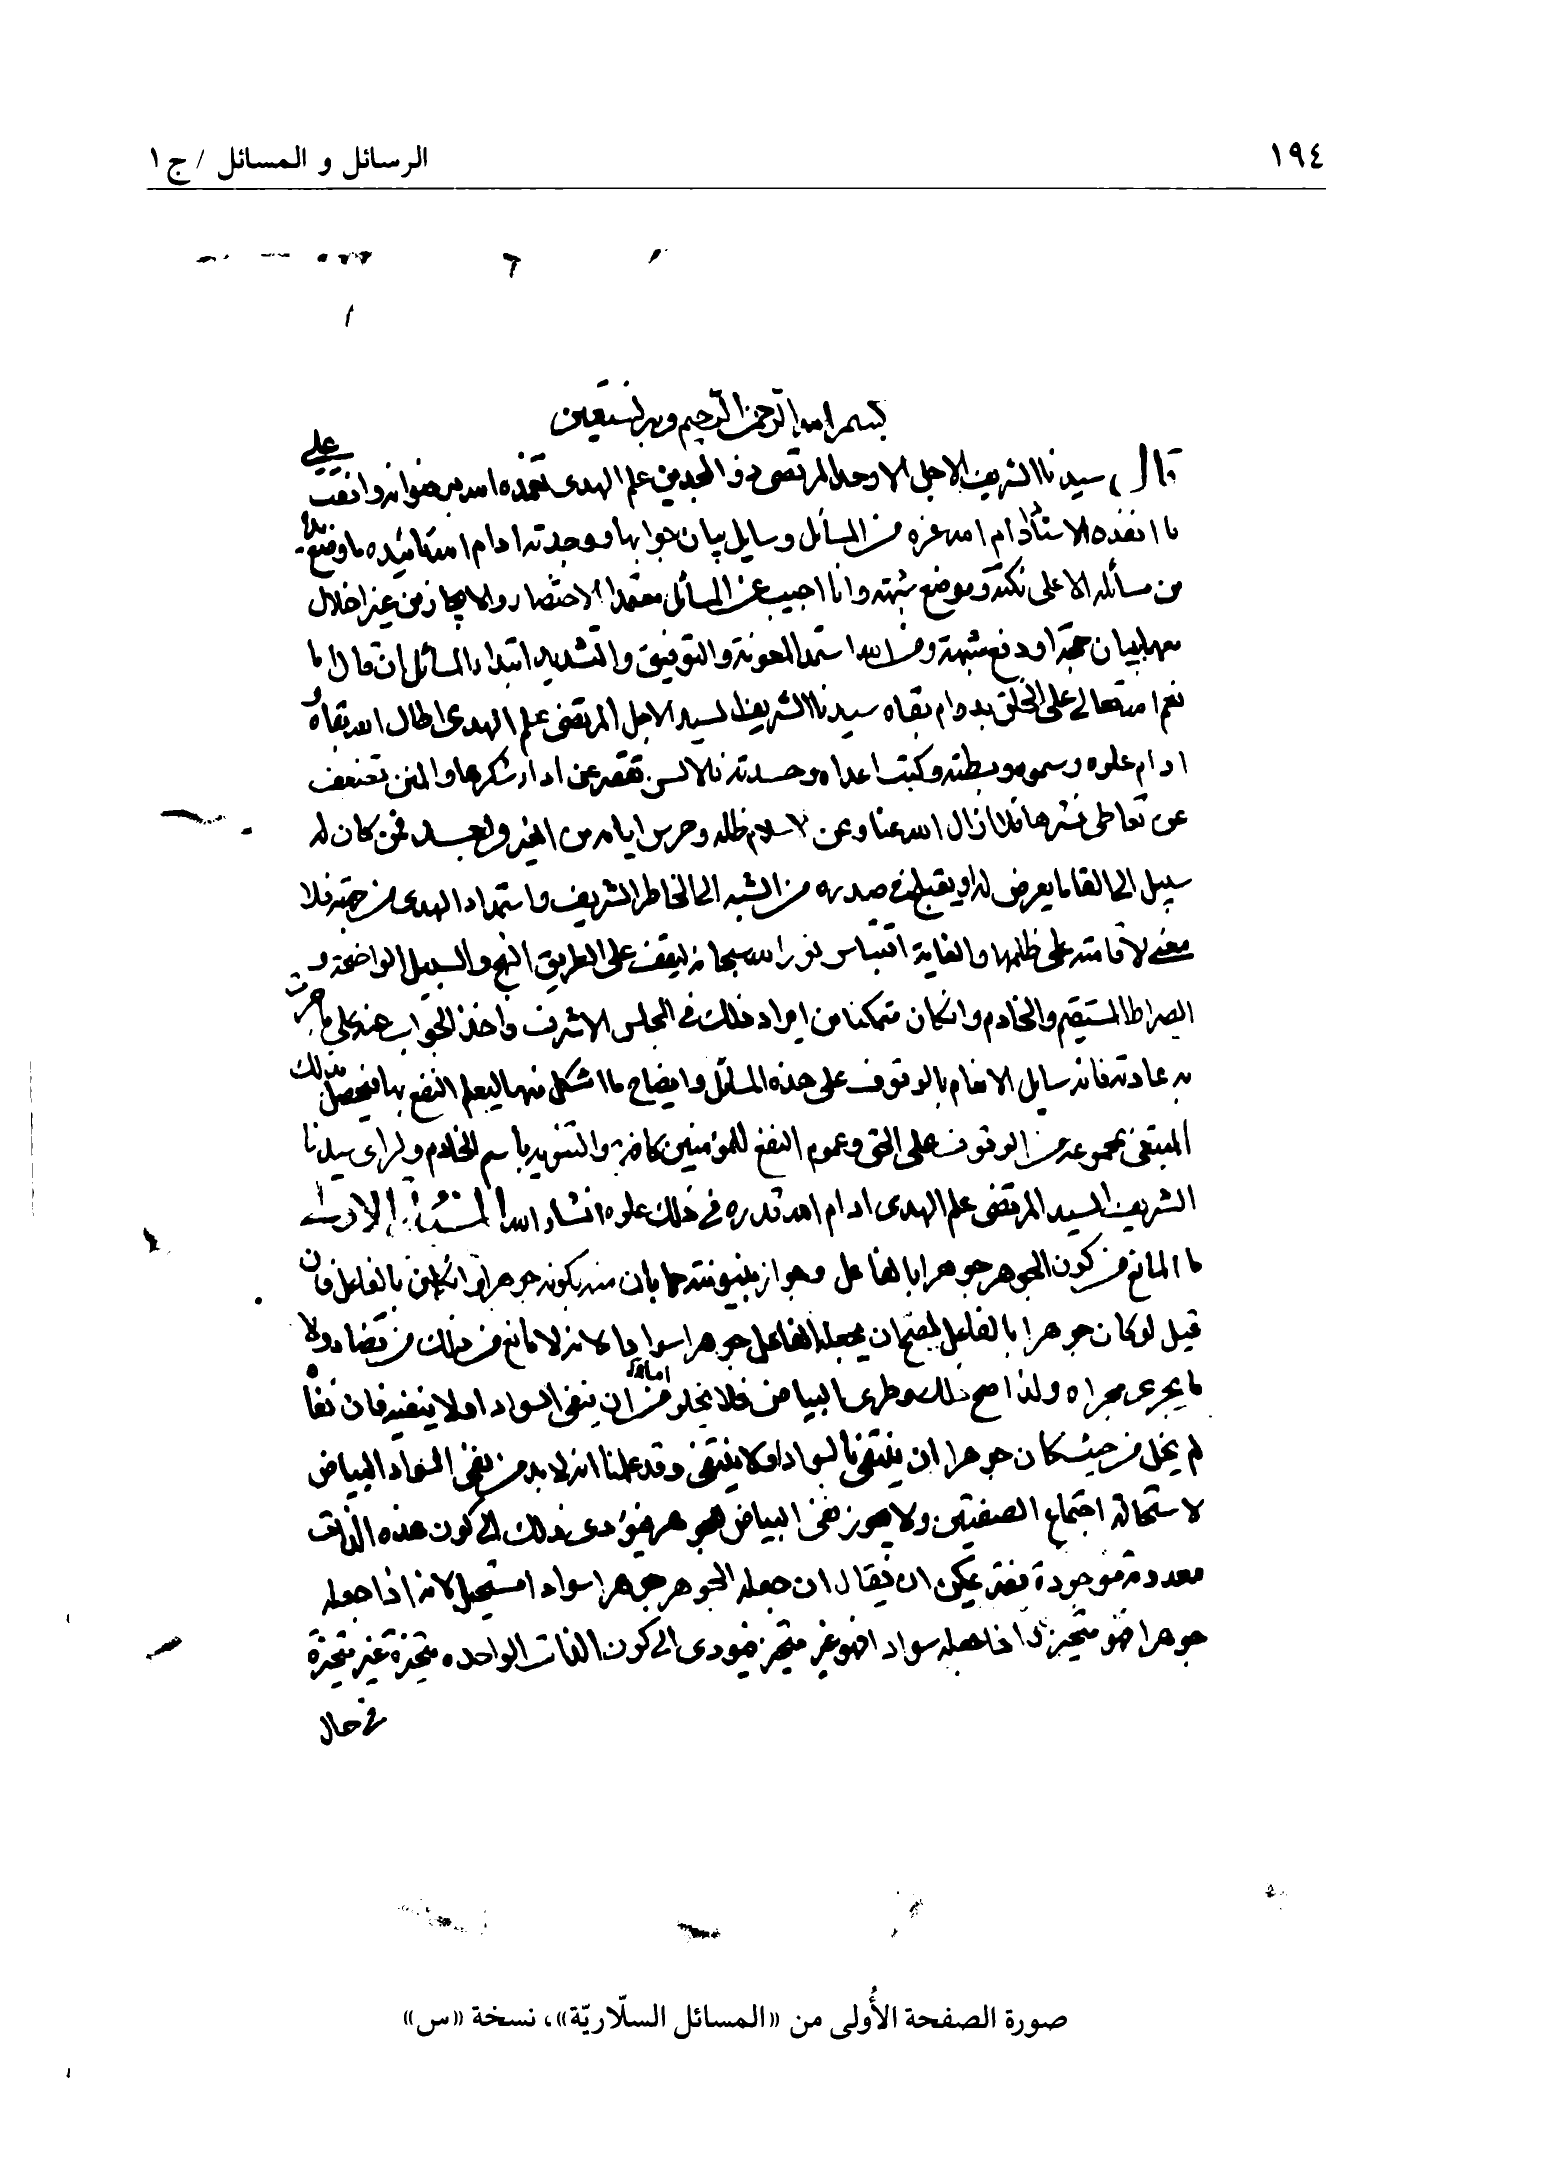 ١٩٤
الرسائل و المسائل / ج ١
بسم الله الرحمن الرحيم وبه نستعين
قال سيدنا الشريف الاجل الاوحد المرتضى ذو المجدين علم الهدى تغمده الله برضوانه وقفت على
ما انفذه الاستاذ ادام الله عزه من المسائل وسايل بيان جوابها ووجدته ادام الله تائيده ما وضع يده
من مسائله الا على نكتة وموضع شبهة وانا اجيب عن المسائل معتمدا الاختصار والايجاز من غير اخلال
معهما ببيان حجة او دفع شبهة ومن الله استمد المعونة والتوفيق والتسديد ابتداء المسائل ان قال اما
نعم الله تعالى على الخلق بدوام بقاء سيدنا الشريف السيد الاجل المرتضى علم الهدى اطال الله بقاه و
ادام علوه وسموه وبسطته وكبت اعداه وحسدته فالالسن تقصر عن اداء شكرها والمنن تضعف
عن تعاطى نشرها فلا ازال الله عنا وعن الاسلام ظله وحرس ايامه من الغير وبعد فمن كان له
سبيل الى القا ما يعرض له او يقبلج في صدره من الشبه الى الخاطر الشريف واستمداد الهدى من جهته فلا
معنى لاقامته على ظلمها والغاية اقتباس نور الله سبحانه ليقف على الطريق النهج والسبيل الواضحة و
الصراط المستقيم والخادم وان كان متمكنا من ايراد ذلك في المجلس الاشرف واخذ الجواب عنه على ما جرت
به عادته فانه سايل الانعام بالوقوف على هذه المسائل وايضاح ما اشكل منها ليعلم النفع بها فيحصل بذلك
المبتغى بمجموعه من الوقوف على الحق وعموم النفع للمؤمنين كافة والتنويه باسم الخادم ولراى سيدنا
الشريف السيد المرتضى علم الهدى ادام الله قدره في ذلك علوه انشاء الله المسئلة الاولى
ما المانع من كون الجوهر جوهرا بالفاعل وجواز بينونته مما بان منه بكونه جوهرا وان لم يكن بالفاعل فان
قيل لو كان جوهرا بالفاعل لصح ان يجعله الفاعل جوهرا سوادا لانه لا مانع من ذلك من تضاد ولا
ما يجرى مجراه ولذا صح ذلك وطرى البياض فلا يخلو من امان ان ينفى السواد او لا ينفيه فان نفاه
لم يخل من حيث كان جوهرا ان ينتفى بالسواد او لا ينتفى وقد علمنا انه لا بد من نفى السواد البياض
لاستحالة اجتماع الصفتين ولا يجوز نفى البياض للجوهر فيؤدى ذلك الى كون هذه الذات
معدومة موجودة فقد يمكن ان يقال ان جعله الجوهر جوهرا سوادا مستحيل لانه اذا جعله
جوهرا فهو متحيز واذا جعله سوادا فهو غير متحيز فيودى الى كون الذات الواحده متحيزة غير متحيزة
في حال
صورة الصفحة الأُولى من «المسائل السلّاريّة»، نسخة «س»